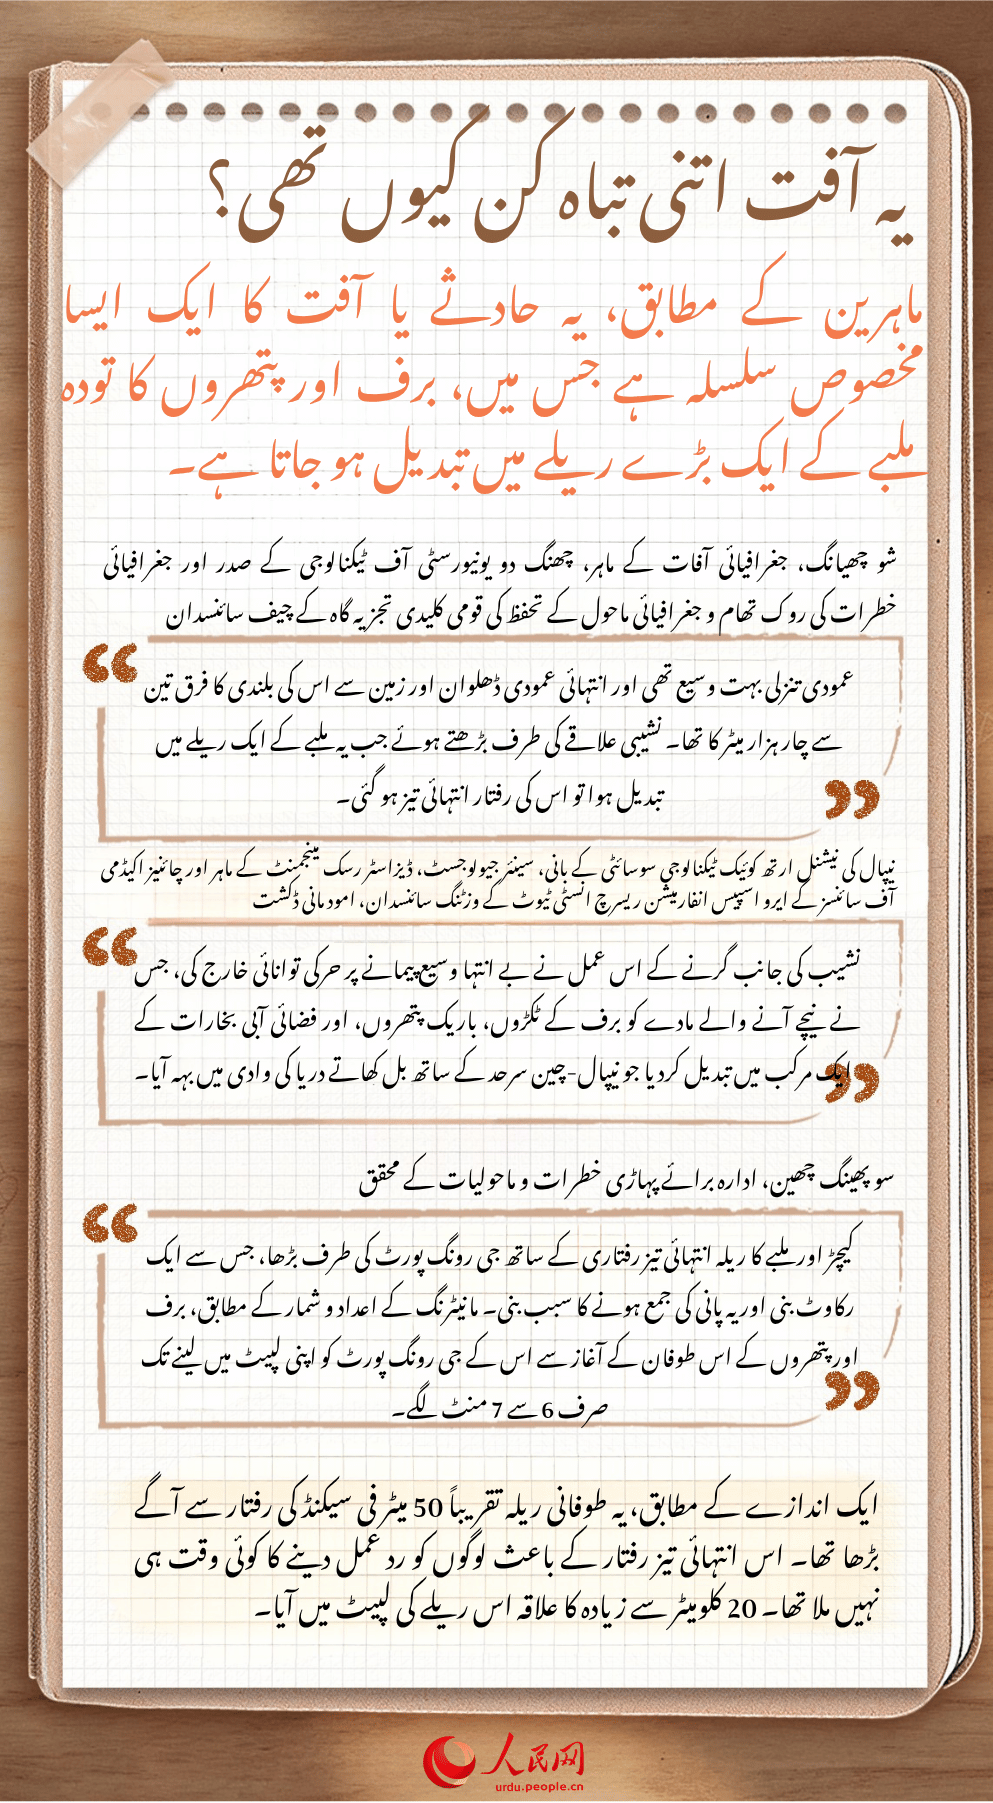 یہ آفت اتنی تباہ کن کیوں تھی؟
ماہرین کے مطابق، یہ حادثے یا آفت کا ایک ایسا
مخصوص سلسلہ ہے جس میں، برف اور پتھروں کا تودہ
ملبے کے ایک بڑے ریلے میں تبدیل ہو جاتا ہے۔
شو چھیانگ، جغرافیائی آفات کے ماہر، چھنگ دو یونیورسٹی آف ٹیکنالوجی کے صدر اور جغرافیائی
خطرات کی روک تھام و جغرافیائی ماحول کے تحفظ کی قومی کلیدی تجزیہ گاہ کے چیف سائنسدان
عمودی تنزلی بہت وسیع تھی اور انتہائی عمودی ڈھلوان اور زمین سے اس کی بلندی کا فرق تین
سے چار ہزار میٹر کا تھا۔ نشیبی علاقے کی طرف بڑھتے ہوئے جب یہ ملبے کے ایک ریلے میں
تبدیل ہوا تو اس کی رفتار انتہائی تیز ہو گئی۔
نیپال کی نیشنل ارتھ کوئیک ٹیکنالوجی سوسائٹی کے بانی، سینئر جیولوجسٹ، ڈیزاسٹر رسک مینجمنٹ کے ماہر اور چائنیز اکیڈمی
آف سائنسز کے ایرو اسپیس انفارمیشن ریسرچ انسٹی ٹیوٹ کے وزٹنگ سائنسدان، امود مانی ڈکشت
نشیب کی جانب گرنے کے اس عمل نے بے انتہا وسیع پیمانے پر حرکی توانائی خارج کی، جس
نے نیچے آنے والے مادے کو برف کے ٹکڑوں، باریک پتھروں، اور فضائی آبی بخارات کے
ایک مرکب میں تبدیل کر دیا جو نیپال-چین سرحد کے ساتھ بل کھاتے دریا کی وادی میں بہہ آیا۔
سو پھینگ چھین، ادارہ برائے پہاڑی خطرات و ماحولیات کے محقق
کیچڑ اور ملبے کا ریلہ انتہائی تیز رفتاری کے ساتھ جی رونگ پورٹ کی طرف بڑھا، جس سے ایک
رکاوٹ بنی اور یہ پانی کی جمع ہونے کا سبب بنی۔ مانیٹرنگ کے اعداد و شمار کے مطابق، برف
اور پتھروں کے اس طوفان کے آغاز سے اس کے جی رونگ پورٹ کو اپنی لپیٹ میں لینے تک
صرف 6 سے 7 منٹ لگے۔
ایک اندازے کے مطابق، یہ طوفانی ریلہ تقریباً 50 میٹر فی سیکنڈ کی رفتار سے آگے
بڑھا تھا۔ اس انتہائی تیز رفتار کے باعث لوگوں کو رد عمل دینے کا کوئی وقت ہی
نہیں ملا تھا۔ 20 کلومیٹر سے زیادہ کا علاقہ اس ریلے کی لپیٹ میں آیا۔
人民网
urdu.people.cn